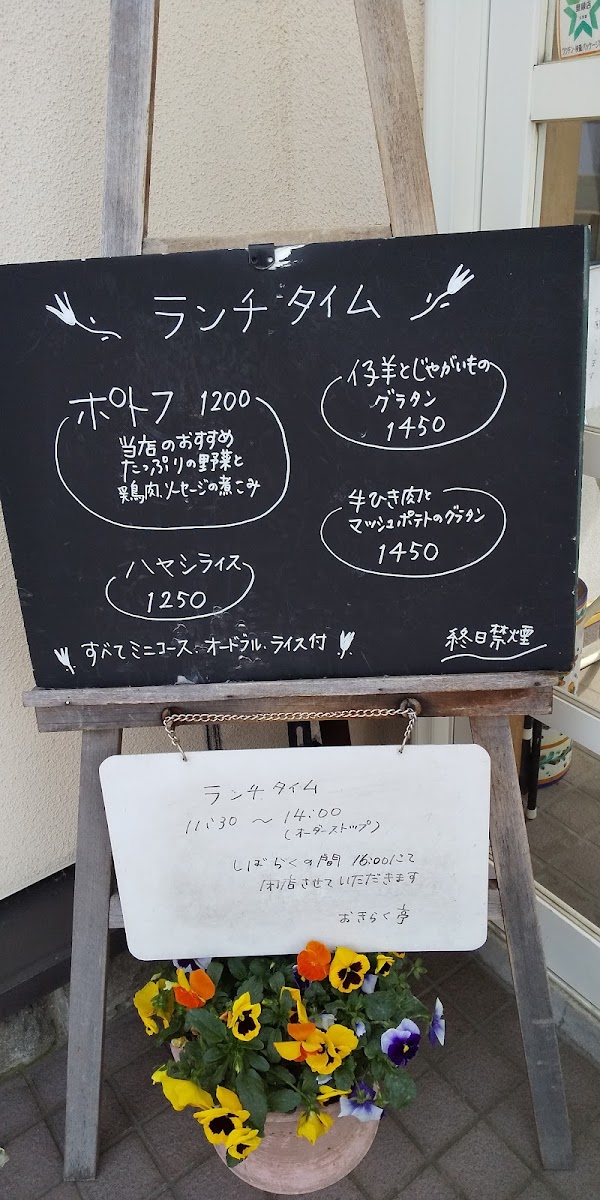 ランチタイム
ポトフ 1200
当店のおすすめ
たっぷりの野菜と
鶏肉、ソーセージの煮こみ
ハヤシライス
1250
仔羊とじゃがいもの
グラタン
1450
牛ひき肉と
マッシュポテトのグラタン
1450
すべてミニコース、オードブル、ライス付
終日禁煙
ランチタイム
11:30 〜 14:00
(オーダーストップ)
しばらくの間 16:00にて
閉店させていただきます
おきらく亭